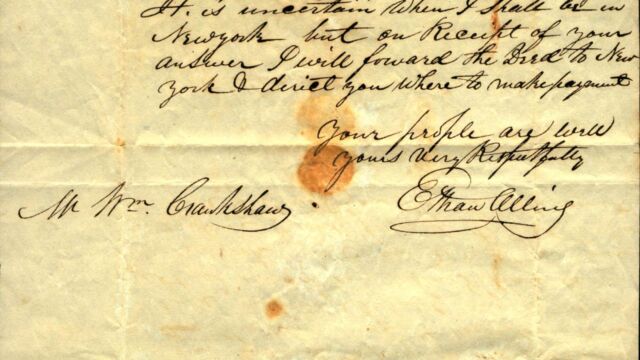 It is uncertain when I shall be in
Newyork but on Receipt of your
answer I will forward the Deed to New
York & direct you where to make payment
Your people are well
yours very Respectfully
Mr Wm. Crankshaw.
Ethan Alling